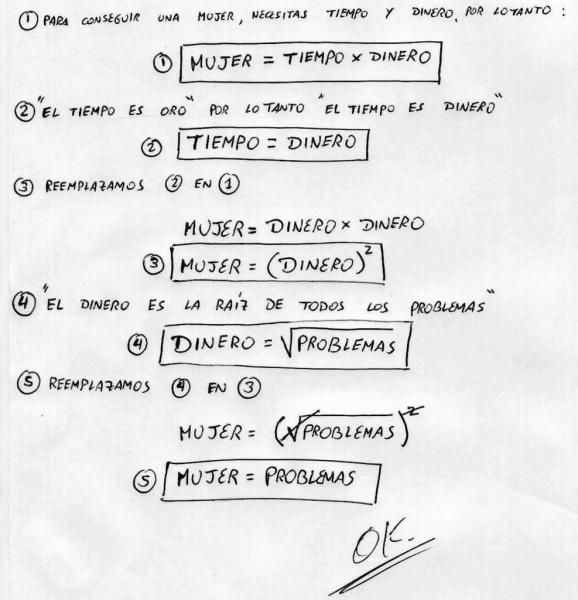 ① PARA CONSEGUIR UNA MUJER, NECESITAS TIEMPO Y DINERO, POR LO TANTO :
① MUJER = TIEMPO x DINERO
② "EL TIEMPO ES ORO" POR LO TANTO "EL TIEMPO ES DINERO"
② TIEMPO = DINERO
③ REEMPLAZAMOS ② EN ①
MUJER = DINERO x DINERO
③ MUJER = (DINERO)²
④ "EL DINERO ES LA RAÍZ DE TODOS LOS PROBLEMAS"
④ DINERO = √PROBLEMAS
⑤ REEMPLAZAMOS ④ EN ③
MUJER = (√PROBLEMAS)²
⑤ MUJER = PROBLEMAS
OK.